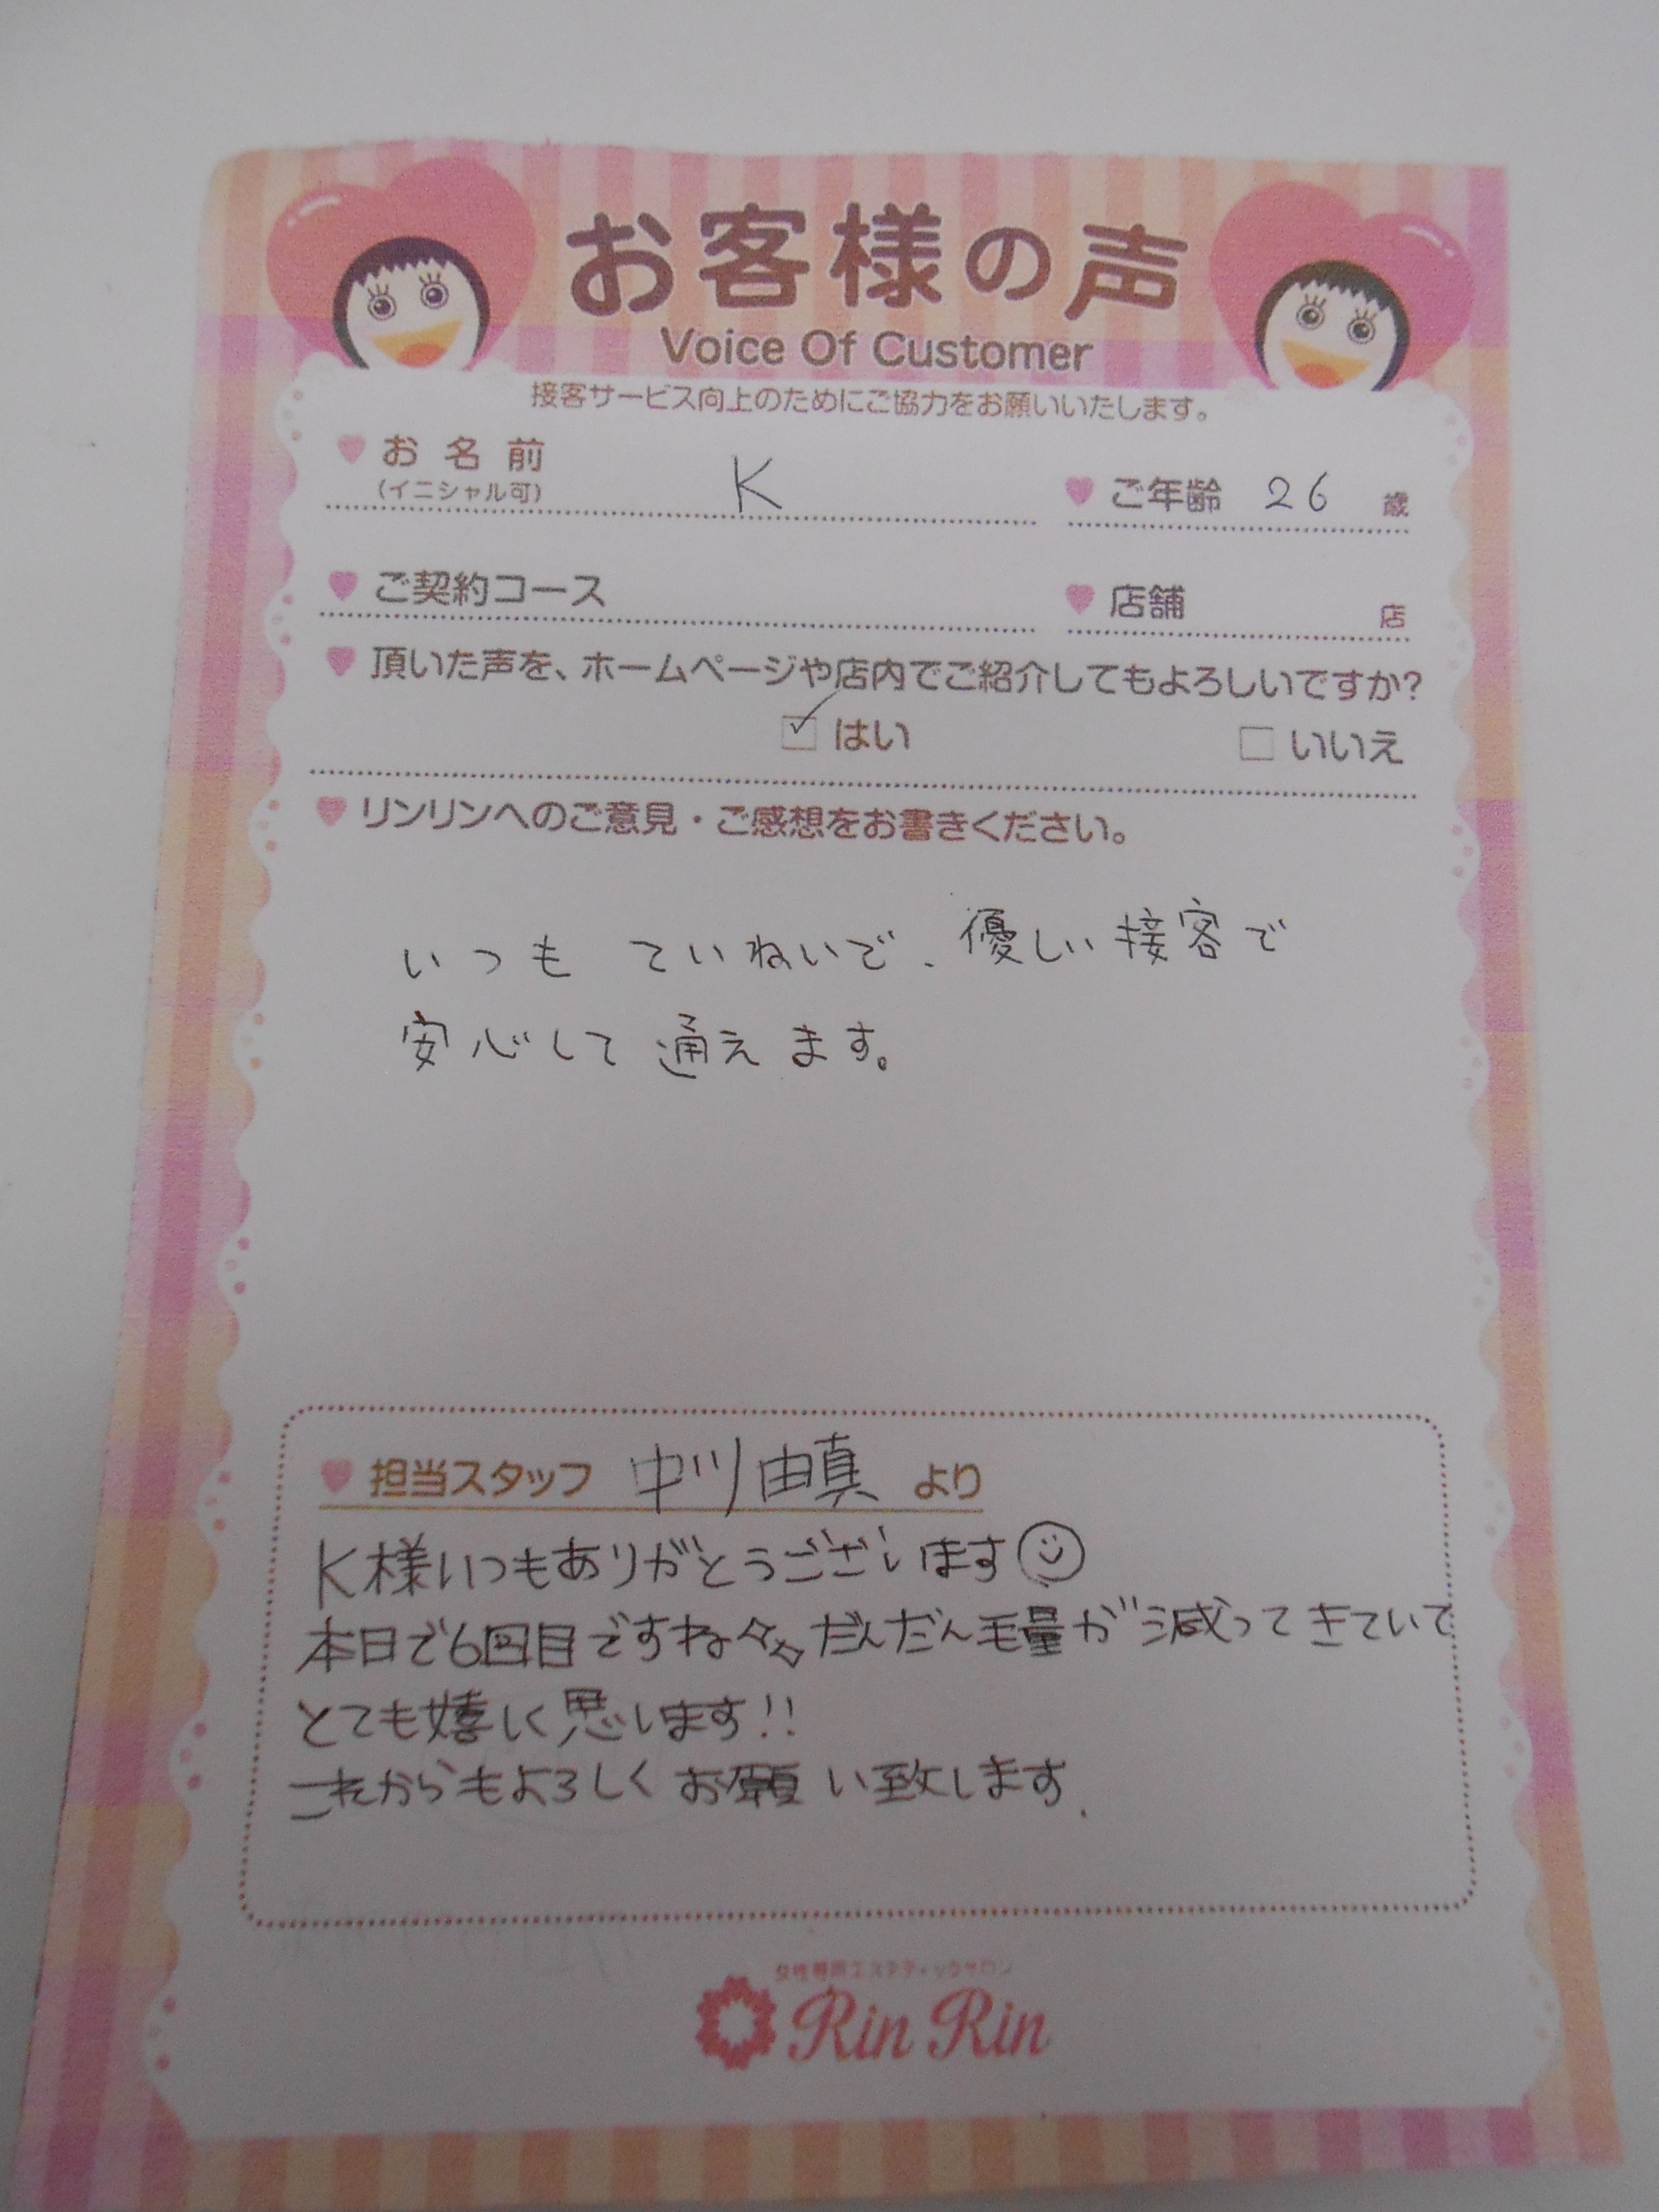 お客様の声
Voice Of Customer
接客サービス向上のためにご協力をお願いいたします。
お名前 K
(イニシャル可)
ご年齢 26 歳
ご契約コース
店舗 店
頂いた声を、ホームページや店内でご紹介してもよろしいですか?
はい いいえ
リンリンへのご意見・ご感想をお書きください。
いつも ていねいで、優しい接客で
安心して通えます。
担当スタッフ 中川由真 より
K様いつもありがとうございます
本日で6回目ですね だんだん毛量が減ってきていて
とても嬉しく思います!!
これからもよろしくお願い致します.
女性専用エステティックサロン
Rin Rin